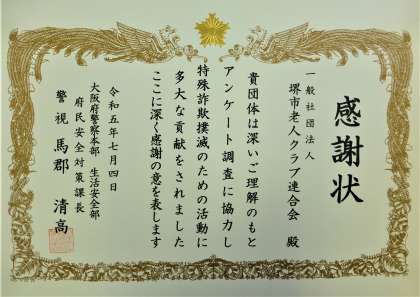 感謝状
一般社団法人
堺市老人クラブ連合会 殿
貴団体は深いご理解のもと
アンケート調査に協力し
特殊詐欺撲滅のための活動に
多大な貢献をされました
ここに深く感謝の意を表します
令和五年七月四日
大阪府警察本部 生活安全部
府民安全対策課長
警視 馬郡 清高